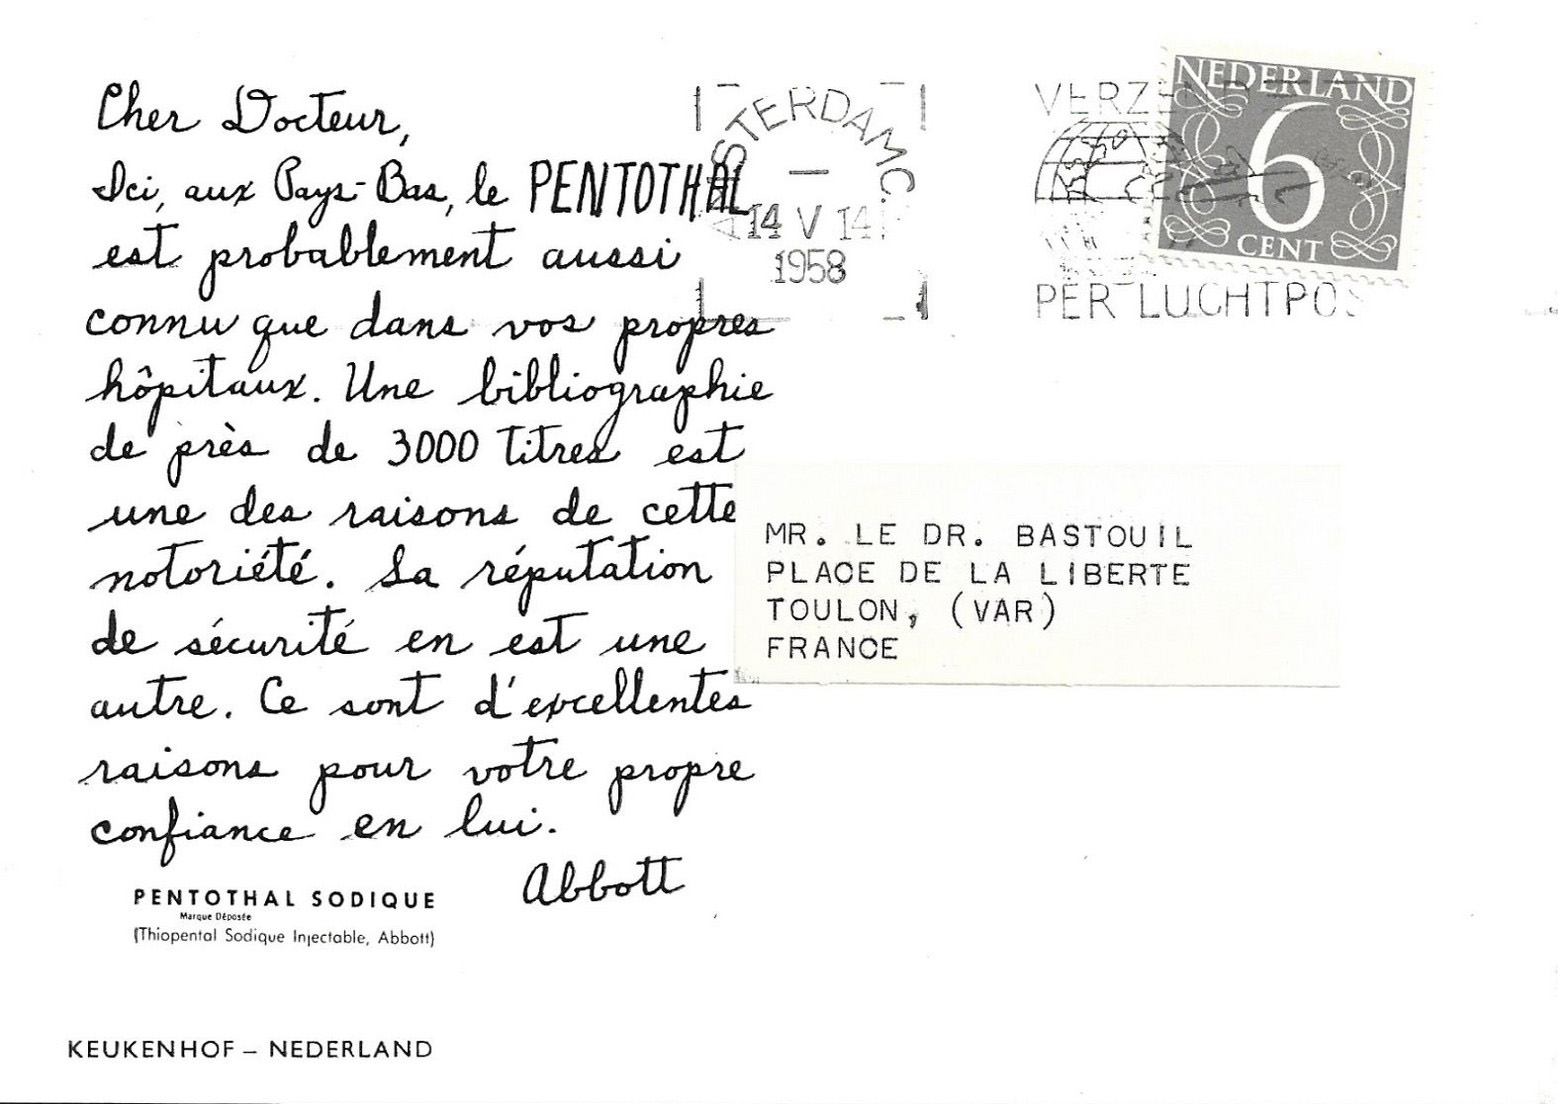 Cher Docteur,
Ici, aux Pays-Bas, le PENTOTHAL
est probablement aussi
connu que dans vos propres
hôpitaux. Une bibliographie
de près de 3000 titres est
une des raisons de cette
notoriété. Sa réputation
de sécurité en est une
autre. Ce sont d'excellentes
raisons pour votre propre
confiance en lui.
Abbott
PENTOTHAL SODIQUE
Marque Déposée
(Thiopental Sodique Injectable, Abbott)
KEUKENHOF – NEDERLAND
AMSTERDAM C.
14 V 14
1958
PER LUCHTPOS
NEDERLAND
6
CENT
MR. LE DR. BASTOUIL
PLACE DE LA LIBERTE
TOULON, (VAR)
FRANCE